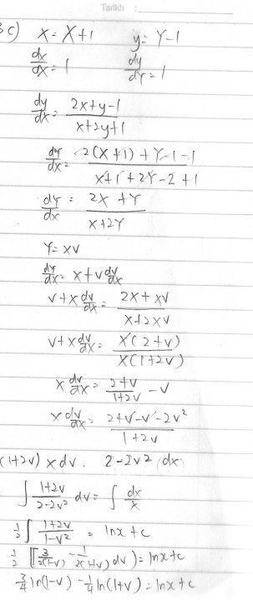 Tarikh
3c) x = X+1 y = Y-1
dx/dX = 1 dy/dY = 1
dy/dx = (2x+y-1)/(x+2y+1)
dY/dX = (2(X+1)+Y-1-1)/(X+1+2Y-2+1)
dY/dX = (2X+Y)/(X+2Y)
Y = XV
dY/dX = X+V dV/dX
V+X dV/dX = (2X+XV)/(X+2XV)
V+X dV/dX = X(2+V)/X(1+2V)
X dV/dX = (2+V)/(1+2V) - V
X dV/dX = (2+V-V-2V²)/(1+2V)
(1+2V) X dV . 2-2V² dX
∫ (1+2V)/(2-2V²) dV = ∫ dX/X
½ ∫ (1+2V)/(1-V²) = lnX+C
½ [∫ 3/2(1-V) - 1/2(1+V) dV] = lnX+C
¾ ln(1-V) - ¼ ln(1+V) = lnX+C